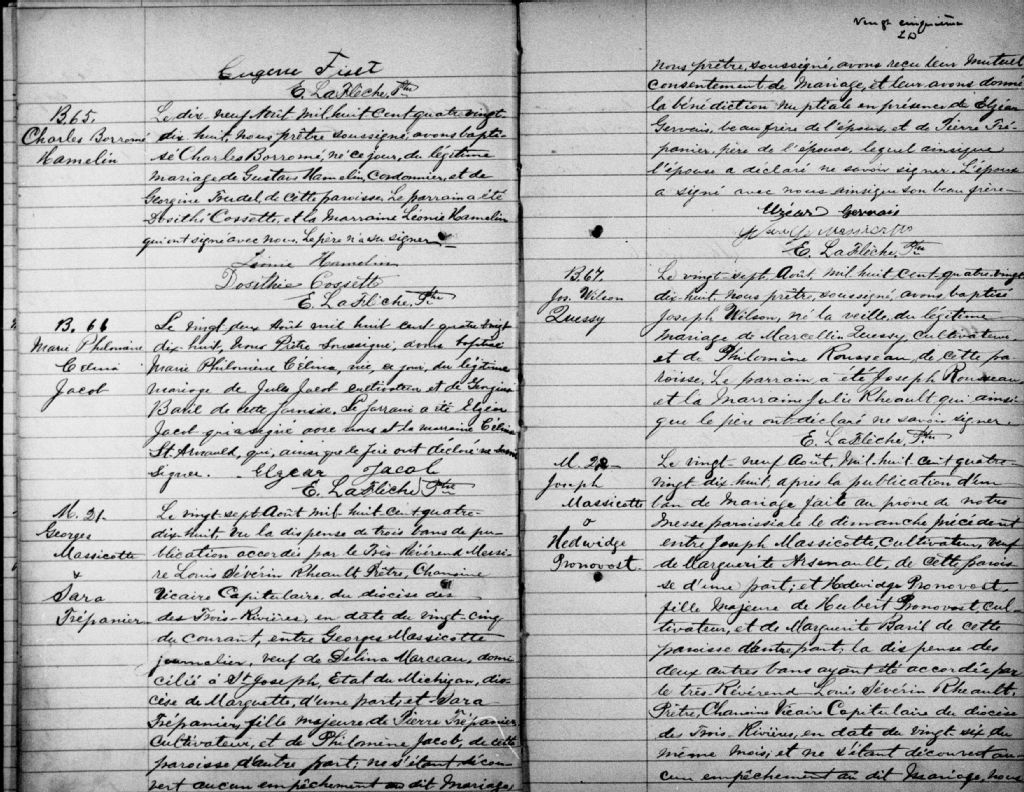 Eugene Fiset
E. LaFlèche, Ptre
B. 65.
Charles Borromé
Hamelin
Le dix-neuf Août mil huit cent quatre-vingt-
dix-huit, nous prêtre soussigné, avons bapti-
sé Charles Borromé, né ce jour, du légitime
mariage de Gustave Hamelin, Cordonnier, et de
Georgine Trudel, de cette paroisse. Le parrain a été
Dosithé Cossette, et la Marraine Léonie Hamelin
qui ont signé avec nous. Le père n'a su signer.
Léonie Hamelin
Dosithée Cossette
E. LaFlèche, Ptre
B. 66
Marie Philomène
Célina
Jacob
Le vingt deux Août mil huit cent quatre vingt
dix-huit, Nous Prêtre Soussigné, avons baptisé
Marie Philomène Célina, née ce jour, du légitime
mariage de Jules Jacob cultivateur et de
Baril de cette paroisse. Le parrain a été Elzéar
Jacob qui a signé avec nous et la marraine Célina
St. Arnauld, qui, ainsi que le père ont déclaré ne savoir
signer. Elzear Jacob
E. LaFlèche Ptre
M. 21.
Georges
Massicotte
&
Sara
Trépanier
Le vingt-sept Août mil huit cent quatre-
dix-huit, vu la dispense de trois bans de pu-
blication accordée par le Très Révérend Messi-
re Louis Sévérin Rheault Prêtre, Chanoine
Vicaire Capitulaire du diocèse des
des Trois-Rivières, en date du vingt-cinq
du courant, entre Georges Massicotte
journalier, veuf de Délina Marceau, domi-
cilié à St Joseph, Etat du Michigan, dio-
cèse de Marquette, d'une part, et Sara
Trépanier, fille majeure de Pierre Trépanier,
Cultivateur, et de Philomène Jacob, de cette
paroisse d'autre part; ne s'étant décou-
vert aucun empêchement au dit Mariage,
Vingt cinquième
25
nous prêtre, soussigné, avons reçu leur mutuel
consentement de Mariage, et leur avons donné
la bénédiction nuptiale en présence de Elzéar
Gervais, beau frère de l'époux, et de Pierre Tré-
panier, père de l'épouse, lequel ainsi que
l'épouse a déclaré ne savoir signer. L'époux
a signé avec nous ainsi que son beau frère
Elzéar Gervais
E. LaFlèche, Ptre
B. 67.
Jos. Wilson
Quessy
Le vingt-sept Août, mil huit cent quatre-vingt
dix-huit, Nous prêtre, soussigné, avons baptisé
Joseph Wilson, né la veille, du légitime
mariage de Marcellin Quessy, cultivateur
et de Philomène Rousseau, de cette pa-
roisse. Le parrain a été Joseph Rousseau
et la Marraine Julie Rheault qui ainsi
que le père ont déclaré ne savoir signer.
E. LaFlèche, Ptre
M. 22
Joseph
Massicotte
&
Hedwidge
Pronovost.
Le vingt-neuf Août, Mil huit cent quatre-
vingt dix-huit, après la publication d'un
ban de Mariage faite au prône de notre
Messe paroissiale le dimanche précédent
entre Joseph Massicotte, Cultivateur, veuf
de Marguerite Arsenault, de cette parois-
se d'une part; et Hedwidge Pronovost,
fille Majeure de Hubert Pronovost, Cul-
tivateur, et de Marguerite Baril de cette
paroisse d'autre part; la dispense des
deux autres bans ayant été accordée par
le très-Révérend Louis Sévérin Rheault,
Prêtre, Chanoine Vicaire Capitulaire du diocèse
des Trois-Rivières, en date du vingt six du
même mois, et ne s'étant découvert au-
cun empêchement au dit Mariage, nous